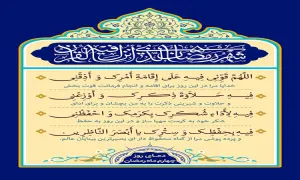 شهر رمضان الذی انزل فیه القرآن
اللَّهُمَّ قَوِّنِی فِیهِ عَلَى إِقَامَةِ أَمْرِکَ وَ أَذِقْنِی
خدایا مرا در این روز برای اقامه و انجام فرمانت قوت بخش
فِیهِ حَلاَوَةَ ذِکْرِکَ وَ أَوْزِعْنِی
و حلاوت و شیرینی ذکرت را به من بچشان و برای ادای
فِیهِ لِأَدَاءِ شُکْرِکَ بِکَرَمِکَ وَ احْفَظْنِی
شکر خود به کرمت مهیا ساز و در این روز به حفظ
فِیهِ بِحِفْظِکَ وَ سِتْرِکَ یَا أَبْصَرَ النَّاظِرِینَ
و پرده پوشی مرا از گناه محفوظ دار ای بصیرترین بینایان عالم
دعـای روز
چهارم ماه رمضان